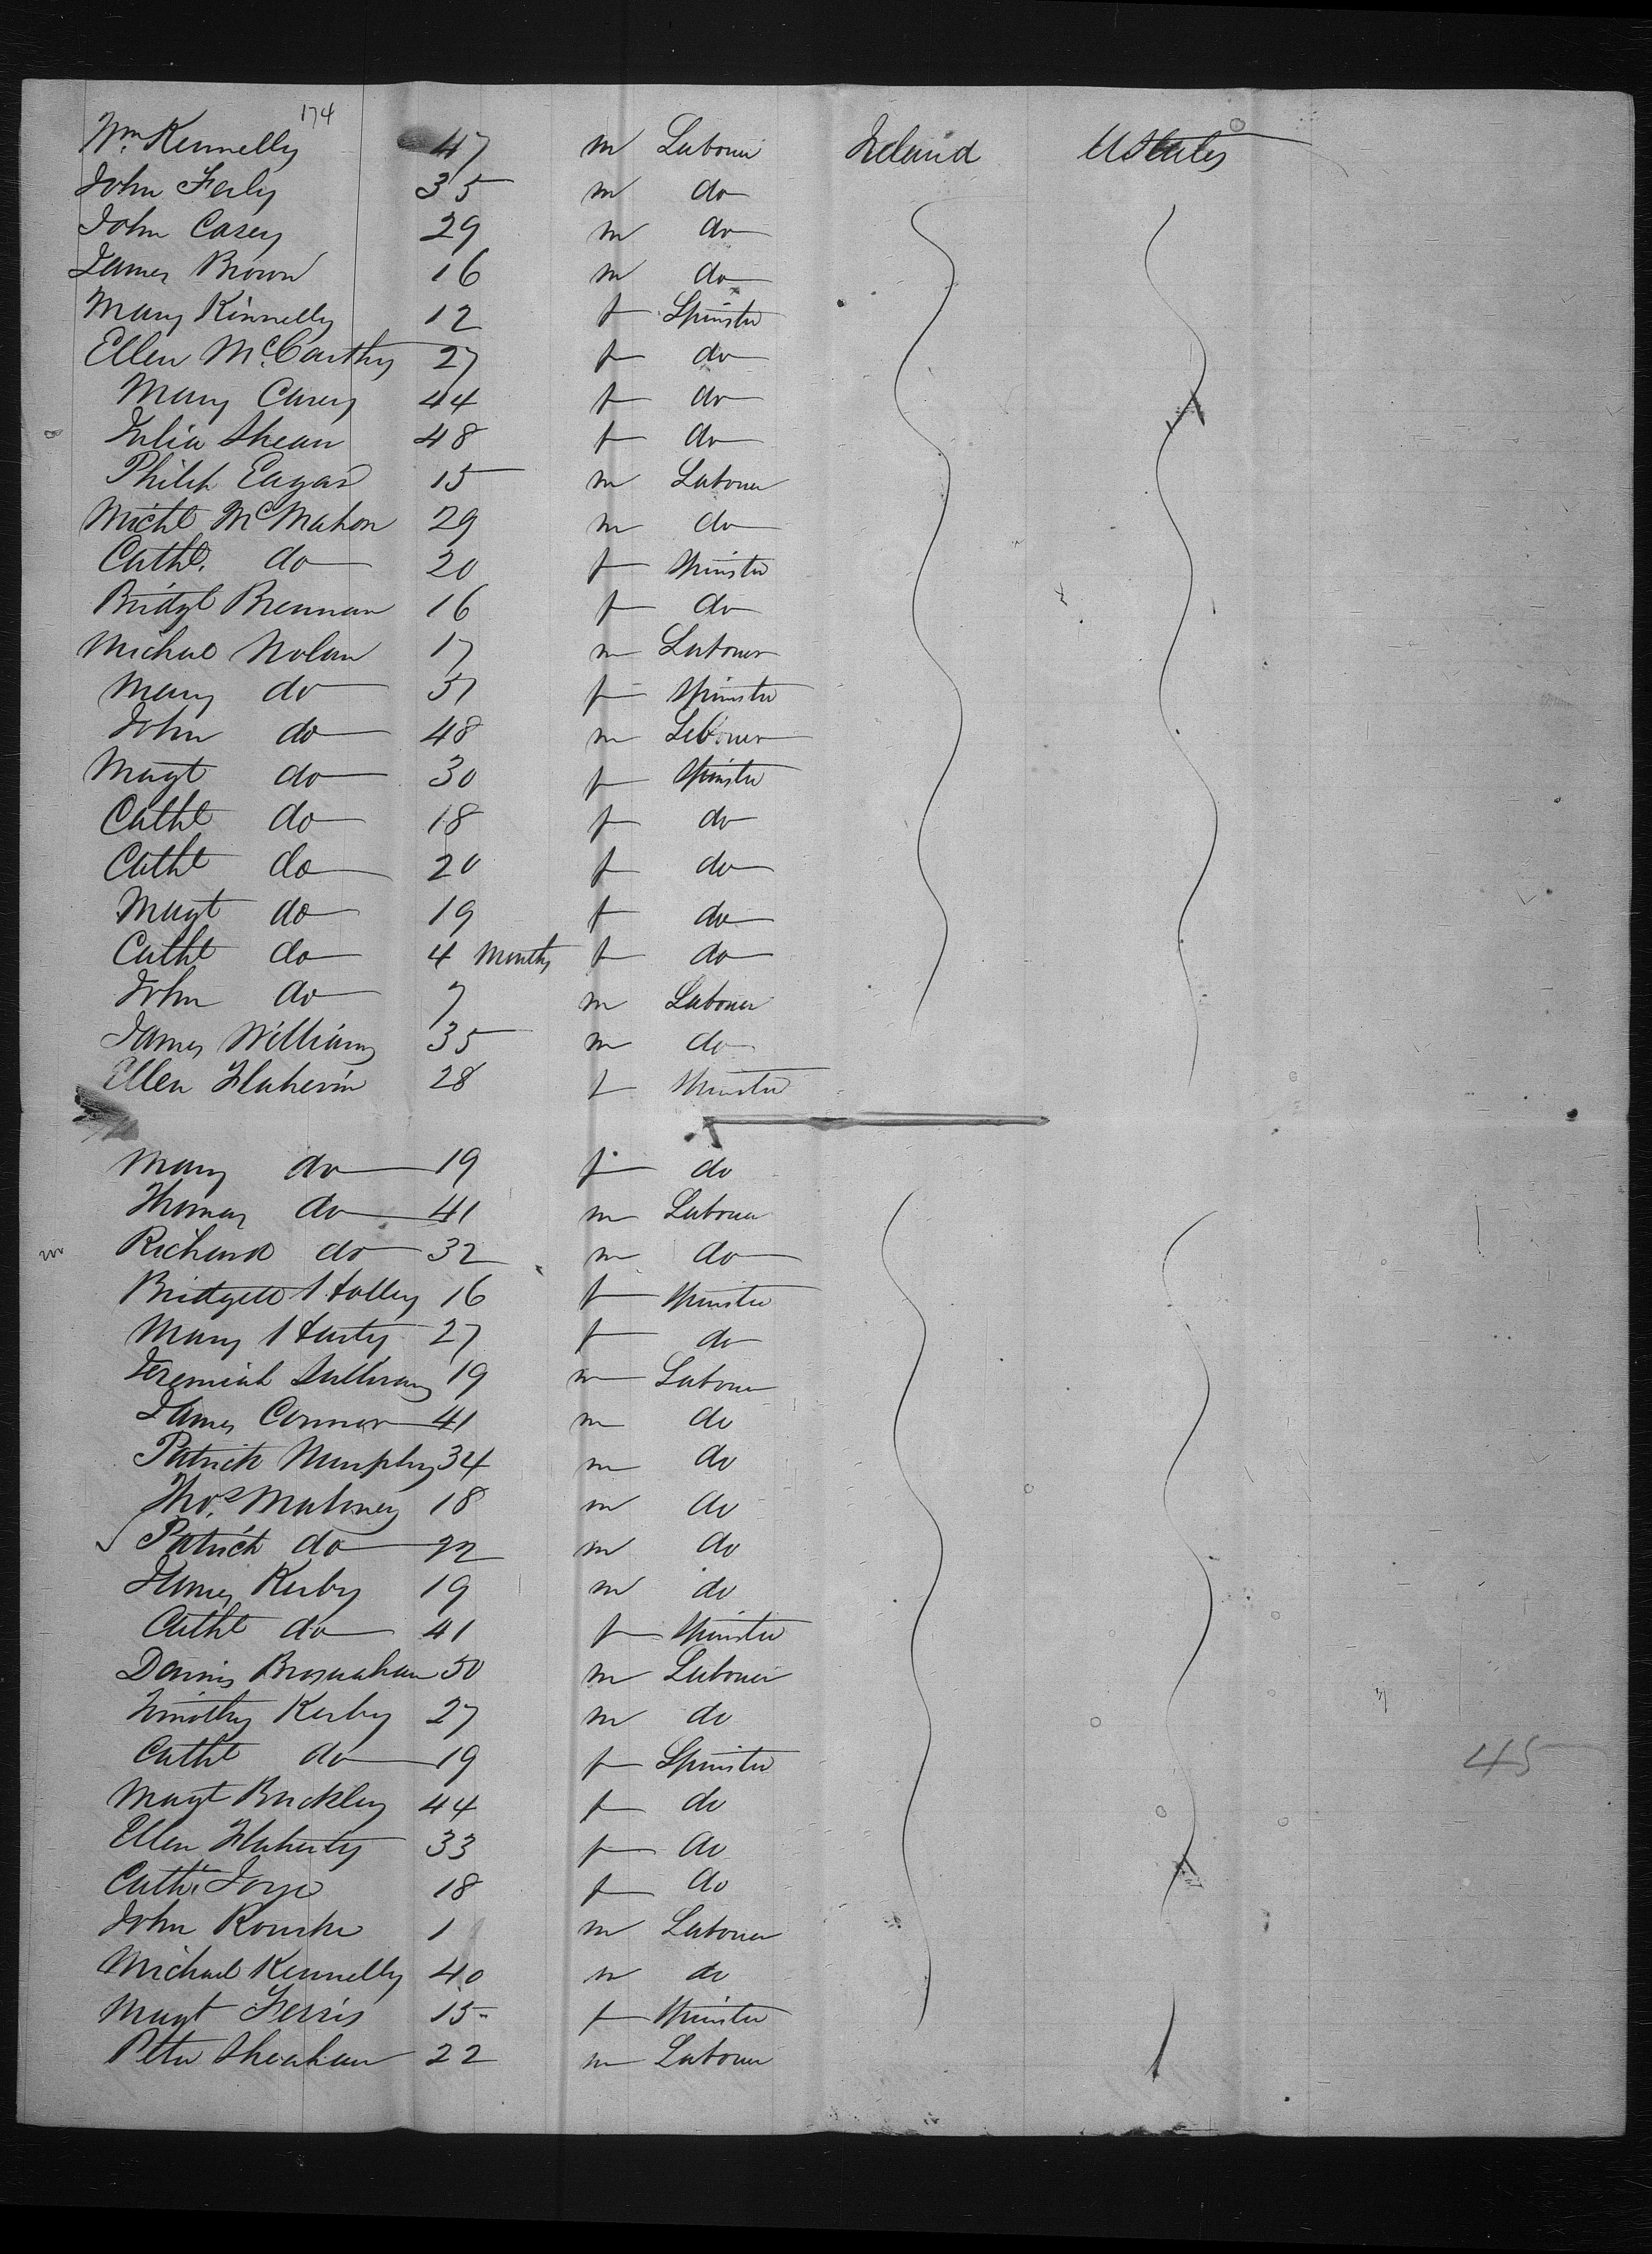 174
Wm. Kennelly 47 m Labourer Ireland UStates
John Fealy 35 m do
John Casey 29 m do
James Brown 16 m do
Mary Kinnelly 12 f Spinster
Ellen McCarthy 27 f do
Mary Carey 44 f do
Julia Shean 48 f do
Philip Eagar 15 m Labourer
Michl McMahon 29 m do
Cathe. do 20 f Spinster
Bridgt Brennan 16 f do
Michael Nolan 17 m Labourer
Mary do 31 f Spinster
John do 48 m Labourer
Magt do 30 f Spinster
Cathe do 18 f do
Cathe do 20 f do
Magt do 19 f do
Cathe do 4 Months f do
John do 7 m Labourer
James Williams 35 m do
Ellen Flaherin 28 f Spinster
Mary do 19 f do
Thomas do 41 m Labourer
Richard do 32 m do
Bridgett Holley 16 f Spinster
Mary Harty 27 f do
Jeremiah Sullivan 19 m Labourer
James Connor 41 m do
Patrick Murphy 34 m do
Thos. Mahoney 18 m do
Patrick do 22 m do
James Kerby 19 m do
Cathe do 41 f Spinster
Dennis Brosnahan 30 m Labourer
Timothy Kerby 27 m do
Cathe do 19 f Spinster
45
Magt Buckley 44 f do
Ellen Flaherty 33 f do
Cathe Joye 18 f do
John Rourke 1 m Labourer
Michael Kennelly 40 m do
Magt Ferris 15 f Spinster
Peter Sheahan 22 m Labourer